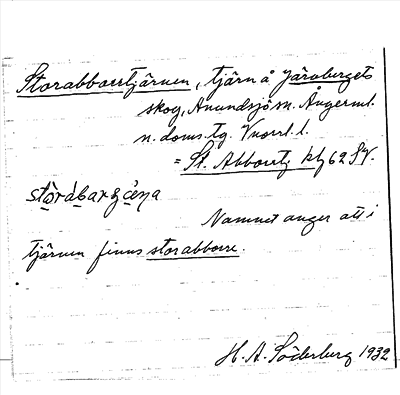 Storabborrtjärnen, tjärn å Järvbergets
skog, Anundsjö sn. Ångerml.
n. doms. tg. Vnorrl. l.
= St. Abborrtj kbl 62 SV.
Namnet anger att i
tjärnen finns storabborre.
H. A. Söderberg 1932